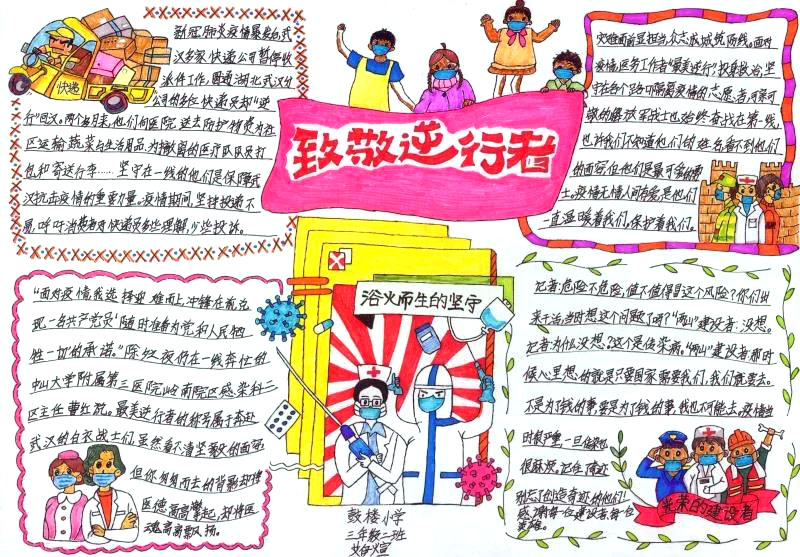 新冠肺炎疫情暴发后武
汉多家快递公司暂停收
派件工作,圆通湖北武汉分
公司的多位快递员却"逆
行"回汉。两个多月来,他们向医院运送防护物资,为社
区运输蔬菜与生活用品,为撤离的医疗队队员打
包和寄送行李……坚守在一线的他们是保障武
汉抗击疫情的重要力量。疫情期间,坚持投递不
易,呼吁消费者对快递员多些理解,少些投诉。
快递
致敬逆行者
灾难面前显担当,众志成城筑防线。面对
疫情,医务工作者"最美逆行",救死扶伤,坚
守在各个路口隔离疫情的志愿者,可亲可
敬的解放军战士也始终奋战在第一线,
也许我们不知道他们的姓名,看不到他们
的面容,但他们是最可爱的战
士。疫情无情人间有爱,是他们
一直温暖着我们,保护着我们。
浴火而生的坚守
"面对疫情,我选择迎难而上,冲锋在前,兑
现一名共产党员'随时准备为党和人民牺
牲一切'的承诺。"除夕夜仍在一线奔忙的
中山大学附属第三医院岭南院区感染科三
区主任曹红说。最美逆行者的称号属于奔赴
武汉的白衣战士们,虽然看不清坚毅的面容,
但你匆匆而去的背影却将
医德高高擎起,却将医
魂高高飘扬。
记者:危险不危险,值不值得冒这个风险?你们出
来干活,当时想这个问题了吗?"两山"建设者:没想。
记者:为什么没想?这个是传染病。"两山"建设者:那时
候心里想的就是只要国家需要我们,我们就要去。
不是为了钱的事,要是为了钱的事,我也不可能去。疫情当
时很严重,一旦传染也
很麻烦,记住奇迹
别忘了创造奇迹的他们!
感谢每一位建设者,每一位
英雄。
光荣的建设者
鼓楼小学
三年级二班